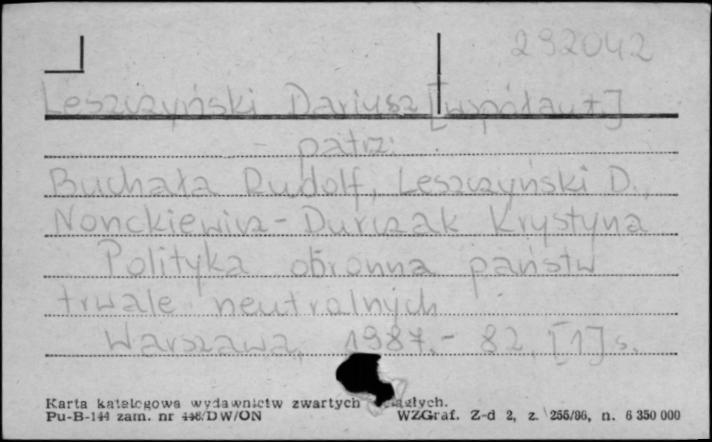 292042
Leszczyński Dariusz [współaut]
patrz:
Buchała Rudolf, Leszczyński D.,
Nonckiewicz-Durczak Krystyna
Polityka obronna państw
trwale neutralnych
Warszawa, 1987.- 82, [1] s.
Karta katalogowa wydawnictw zwartych
Pu-B-144 zam. nr 446/DW/ON WZGraf. Z-d 2, z. 255/86, n. 6 350 000